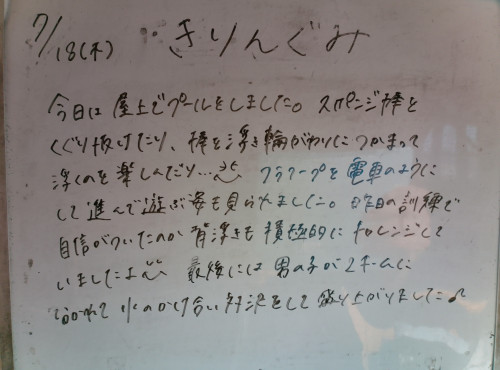 7/18(木) きりんぐみ
今日は屋上でプールをしました。スポンジ棒を
くぐり抜けたり、棒を浮き輪がわりにつかまって
浮くのを楽しんだり… フラフープを電車のように
して進んで遊ぶ姿も見られました。昨日の訓練で
自信がついたのか背浮きも積極的にチャレンジして
いましたよ 最後には男の子が2チームに
分かれて水のかけ合い対決をして盛り上がりました♪